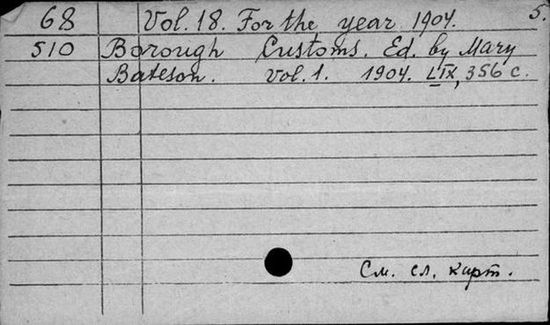 68 Vol. 18. For the year 1904. 5.
510 Borough Customs. Ed. by Mary
Bateson. Vol. 1. 1904. LIX, 356 c.
См. сл. карт.